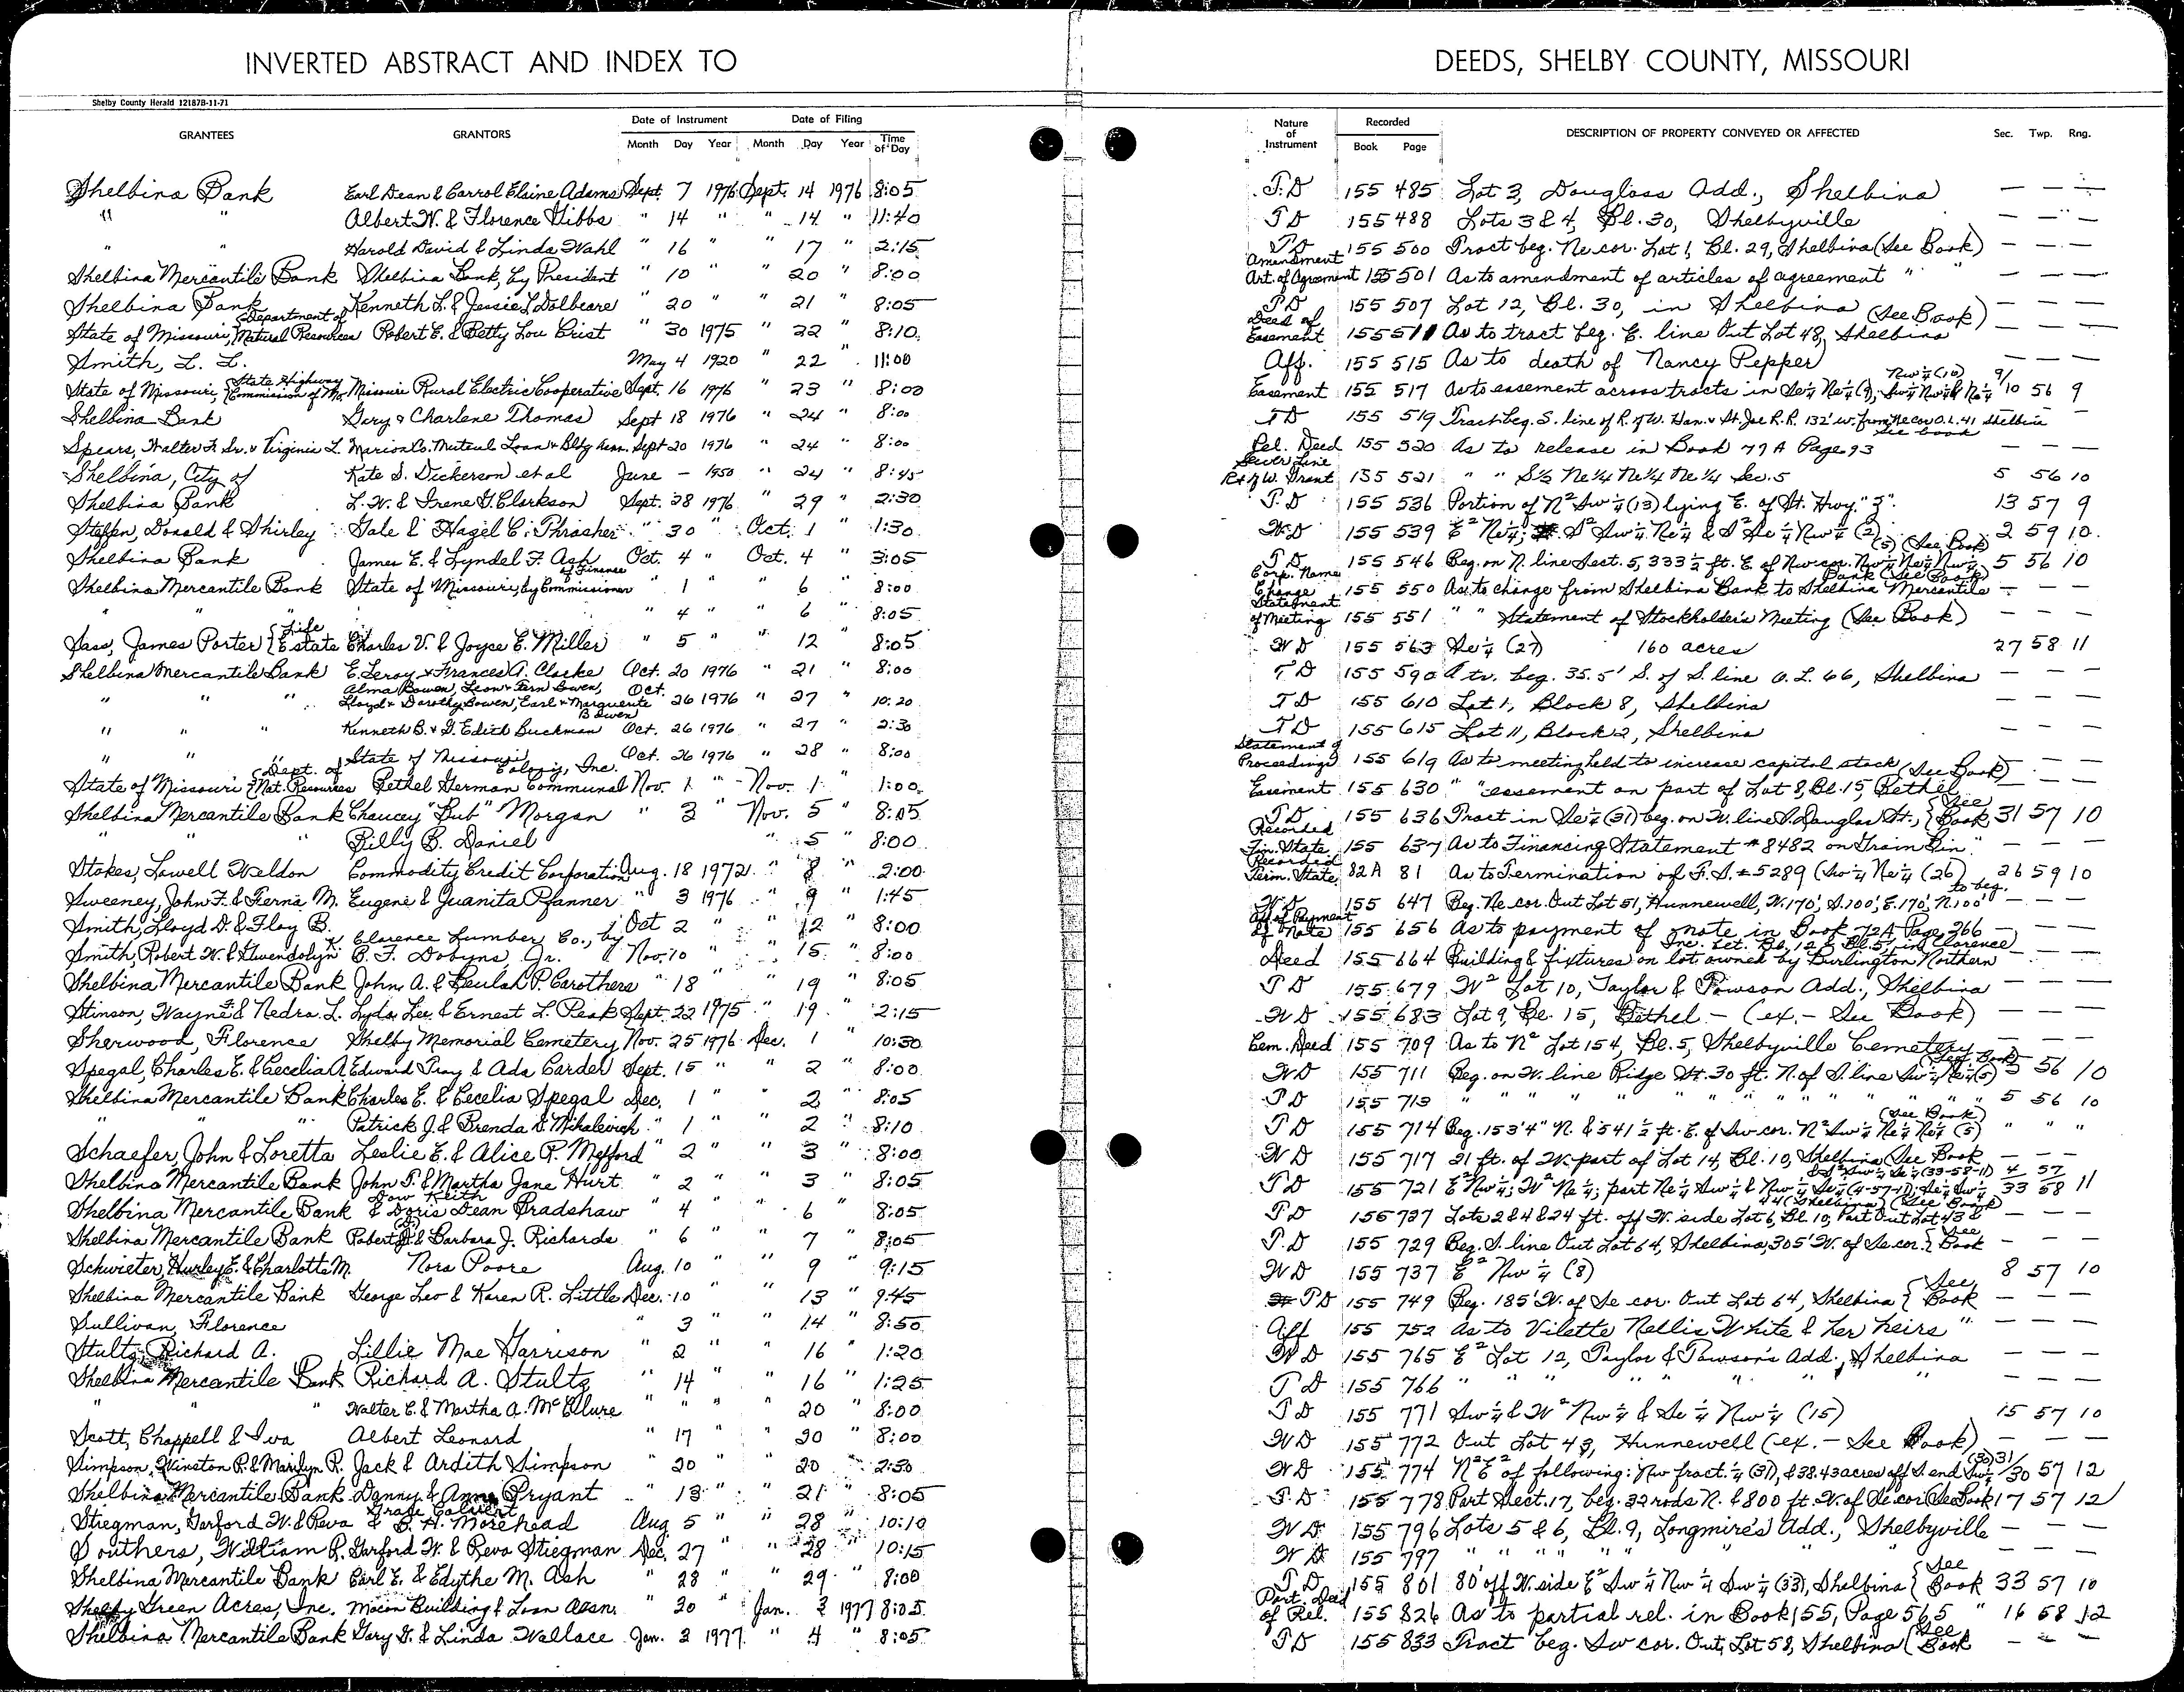 INVERTED ABSTRACT AND INDEX TO DEEDS, SHELBY COUNTY, MISSOURI
Shelby County Herald 12187B-11-71
GRANTEES GRANTORS Date of Instrument Month Day Year Date of Filing Month Day Year Time of Day Nature of Instrument Recorded Book Page DESCRIPTION OF PROPERTY CONVEYED OR AFFECTED Sec. Twp. Rng.
Shelbina Bank Earl Dean & Carrol Elaine Adams Sept. 7 1976 Sept. 14 1976 8:05 T.D 155 485 Lot 3, Douglass Add., Shelbina — — —
" " Albert W. & Florence Gibbs " 14 " " 14 " 11:40 TD 155 488 Lots 3 & 4, Bl. 30, Shelbyville — — —
" " Harold David & Linda Wahl " 16 " " 17 " 2:15 TD 155 500 Tract beg. Ne cor. Lot 1, Bl. 29, Shelbina (See Book) — — —
Shelbina Mercantile Bank Shelbina Bank, by President " 10 " " 20 " 8:00 Amendment Art. of Agreement 155 501 As to amendment of articles of agreement " " — — —
Shelbina Bank Kenneth L. & Jessie L Dolbeare " 20 " " 21 " 8:05 TD 155 507 Lot 12, Bl. 30, in Shelbina (See Book) — — —
State of Missouri, {Department of Natural Resources Robert E. & Betty Lou Crist " 30 1975 " 22 " 8:10 Deed of Easement 155 511 As to tract beg. E. line Out Lot 48, Shelbina — — —
Smith, L. L. May 4 1920 " 22 " 11:00 Aff. 155 515 As to death of Nancy Pepper — — —
State of Missouri, {State Highway Commission of Mo. Missouri Rural Electric Cooperative Sept. 16 1976 " 23 " 8:00 Easement 155 517 As to easement across tracts in Se¼ Ne¼ (9), Sw¼ Nw¼ & N½ Nw¼ (10) 9/10 56 9
Shelbina Bank Gary & Charlene Thomas Sept 18 1976 " 24 " 8:00 TD 155 519 Tract beg. S. line of R. of W. Han. & St. Joe R.R. 132' w. from Ne cor O.L. 41 Shelbina See book
Spears, Walter F. Sr. & Virginia L. Marion Co. Mutual Loan & Bldg Assn. Sept 20 1976 " 24 " 8:00 Rel. Deed 155 520 As to release in Book 79A Page 93 — — —
Shelbina, City of Kate S. Dickerson et al June — 1950 " 24 " 8:45 Sewer Line Rt of W. Grant 155 521 " " S½ Ne¼ Ne¼ Ne¼ Sec. 5 5 56 10
Shelbina Bank L. W. & Irene G. Clarkson Sept. 28 1976 " 29 " 2:30 T.D 155 536 Portion of N² Sw¼ (13) lying E. of St. Hwy. "3" 13 57 9
Steffen, Donald & Shirley Gale & Hazel C. Thrasher " 30 " Oct. 1 " 1:30 W.D 155 539 E² Ne¼; S² Sw¼ Ne¼ & S² Se¼ Nw¼ (2) 2 59 10
Shelbina Bank James E. & Lyndel F. Ash Oct. 4 " Oct. 4 " 3:05 T D 155 546 Beg. on N. line Sect. 5, 333½ ft. E of Nw cor. Nw¼ Ne¼ Nw¼ (5) (See Book) 5 56 10
Shelbina Mercantile Bank State of Missouri, by Commissioner of Finance " 1 " " 6 " 8:00 Corp. Name Change 155 550 As to change from Shelbina Bank to Shelbina Mercantile Bank (See Book) — — —
" " " 4 " " 6 " 8:05 Statement of Meeting 155 551 " " Statement of Stockholder's Meeting (See Book) — — —
Sass, James Porter {Life Estate Charles V. & Joyce E. Miller " 5 " " 12 8:05 W D 155 563 Se¼ (27) 160 acres 27 58 11
Shelbina Mercantile Bank E. Leroy & Frances A. Clarke Oct. 20 1976 " 21 " 8:00 T D 155 590 A tr. beg. 35.5' S. of S. line O. L. 66, Shelbina — — —
" " " Alma Bowen, Leon & Fern Bowen, Lloyd & Dorothy Bowen, Earl & Marguerite Bowen Oct. 26 1976 " 27 " 10:20 TD 155 610 Lot 1, Block 8, Shelbina — — —
" " " Kenneth B. & G. Edith Buckman Oct. 26 1976 " 27 " 2:30 TD 155 615 Lot 11, Block 2, Shelbina — — —
" " " State of Missouri Oct. 26 1976 " 28 " 8:00 Statement of Proceedings 155 619 As to meeting held to increase capital stock (See Book) — — —
State of Missouri {Dept. of Nat. Resources Bethel German Communal Colony, Inc. Nov. 1 " Nov. 1 " 1:00 Easement 155 630 " " easement on part of Lot 8, Bl. 15, Bethel — — —
Shelbina Mercantile Bank Chaucey "Bub" Morgan " 3 " Nov. 5 " 8:05 TD 155 636 Tract in Se¼ (31) beg. on W. line S. Douglas St., {See Book 31 57 10
" " Billy B. Daniel " 5 " 8:00 Recorded Fin. State 155 637 As to Financing Statement #8482 on Grain Bin " — — —
Stokes, Lowell Weldon Commodity Credit Corporation Aug. 18 1972 " 8 " 2:00 Recorded Term. State. 82A 81 As to Termination of F. S. #5289 (Sw¼ Ne¼ (26) 26 59 10
Sweeney, John F. & Ferna M. Eugene & Juanita Pfanner " 3 1976 " 9 " 1:45 W D 155 647 Beg. Ne cor. Out Lot 51, Hunnewell, W. 170', S. 100', E. 170', N. 100' to beg. — — —
Smith, Lloyd D. & Floy B. Oct 2 " " 12 " 8:00 Aff. of Payment of Note 155 656 As to payment of note in Book 72A Page 366 — — —
Smith, Robert W. & Gwendolyn K. Clarence Lumber Co., by C. F. Dobyns, Jr. Nov. 10 " " 15 " 8:00 Deed 155 664 Building & fixtures on lot owned by Burlington Northern Inc. Let. Bl. 12 & Bl. 5, in Clarence — — —
Shelbina Mercantile Bank John A. & Beulah P. Carothers " 18 " 19 " 8:05 T D 155 679 W² Lot 10, Taylor & Pawson Add., Shelbina — — —
Stinson, Wayne F. & Nedra L. Lyda Lee & Ernest L. Peak Sept. 22 1975 " 19 " 2:15 W D 155 683 Lot 9, Bl. 15, Bethel — (ex. — See Book) — — —
Sherwood, Florence Shelby Memorial Cemetery Nov. 25 1976 Dec. 1 " 10:30 Cem. Deed 155 709 As to N² Lot 154, Bl. 5, Shelbyville Cemetery — — —
Spegal, Charles E. & Cecelia A. Edward Tray & Ada Carder Sept. 15 " " 2 " 8:00 WD 155 711 Beg. on W. line Ridge St. 30 ft. N. of S. line Sw¼ Ne¼ (5) (See Book) 5 56 10
Shelbina Mercantile Bank Charles E. & Cecelia Spegal Dec. 1 " " 2 " 8:05 T D 155 713 " " " " " " " " " " 5 56 10
" " " Patrick J. & Brenda D. Mihalevich " 1 " " 2 " 8:10 T D 155 714 Beg. 153'4" N. & 541½ ft. E. of Sw cor. N² Sw¼ Ne¼ Ne¼ (5) (See Book) " " "
Schaefer, John & Loretta Leslie E. & Alice P. Mefford " 2 " " 3 " 8:00 W D 155 717 21 ft. of W. part of Lot 14, Bl. 10, Shelbina (See Book — — —
Shelbina Mercantile Bank John T. & Martha Jane Hurt " 2 " " 3 " 8:05 T D 155 721 E² Nw¼; W² Ne¼; part Ne¼ Sw¼ & Nw¼ Se¼ (4-57-11); Se¼ Sw¼ & S² Sw¼ Se¼ (33-58-11) 4 57 33 58 11
Shelbina Mercantile Bank Dow Keith & Doris Dean Bradshaw " 4 " " 6 " 8:05 T D 155 727 Lots 2 & 4 & 24 ft. off W. side Lot 6, Bl. 10, Part Out Lot 43 & 44 (Shelbina) (See Book) — — —
Shelbina Mercantile Bank Robert & Barbara J. Richards " 6 " " 7 " 8:05 T.D 155 729 Beg. S. line Out Lot 64, Shelbina, 305' W. of Se cor. {See Book — — —
Schwieter, Hurley E. & Charlotte M. Nora Poore Aug. 10 " " 9 " 9:15 W D 155 737 E² Nw¼ (8) 8 57 10
Shelbina Mercantile Bank George Leo & Karen R. Little Dec. 10 " " 13 " 9:45 T D 155 749 Beg. 185' W. of Se cor. Out Lot 64, Shelbina {See Book — — —
Sullivan, Florence " 3 " " 14 " 8:50 Aff 155 752 As to Vilette Nellie White & her heirs " — — —
Stultz, Richard A. Lillie Mae Garrison " 2 " " 16 " 1:20 W D 155 765 E² Lot 12, Taylor & Pawson's Add., Shelbina — — —
Shelbina Mercantile Bank Richard A. Stultz " 14 " " 16 " 1:25 T D 155 766 " " " " " " " — — —
" " " Walter E. & Martha A. McClure " " " " 20 " 8:00 T D 155 771 Sw¼ & W² Nw¼ & Se¼ Nw¼ (15) 15 57 10
Scott, Chappell & Iva Albert Leonard " 17 " 20 " 8:00 W D 155 772 Out Lot 43, Hunnewell (ex. — See Book) — — —
Simpson, Winston R. & Marilyn R. Jack & Ardith Simpson " 20 " 20 " 2:30 W D 155 774 N² E² of following: Nw fract. ¼ (31), & 38.43 acres off S. end Sw¼ (30) 31/30 57 12
Shelbina Mercantile Bank Danny & Anna Bryant " 13 " " 21 " 8:05 T.D 155 778 Part Sect. 17, beg. 32 rods N. & 800 ft. W. of Se cor. (See Book 17 57 12
Stiegman, Garford W. & Reva Grace Calvert & B. H. Morehead Aug 5 " " 28 " 10:10 W D 155 796 Lots 5 & 6, Bl. 9, Longmire's Add., Shelbyville — — —
Southers, William R. Garford W. & Reva Stiegman Dec. 27 " 28 " 10:15 W D 155 797 " " " " " " " — — —
Shelbina Mercantile Bank Earl E. & Edythe M. Ash " 28 " " 29 " 8:00 T D 155 801 80' off W. side E² Sw¼ Nw¼ Sw¼ (33), Shelbina {See Book 33 57 10
Shelby Green Acres, Inc. Macon Building & Loan Assn. " 30 " Jan. 3 1977 8:05 Part. Deed of Rel. 155 826 As to partial rel. in Book 155, Page 565 " 16 58 12
Shelbina Mercantile Bank Gary G. & Linda Wallace Jan. 3 1977 " 4 " 8:05 T D 155 833 Tract beg. Sw cor. Out Lot 58, Shelbina {See Book — — —